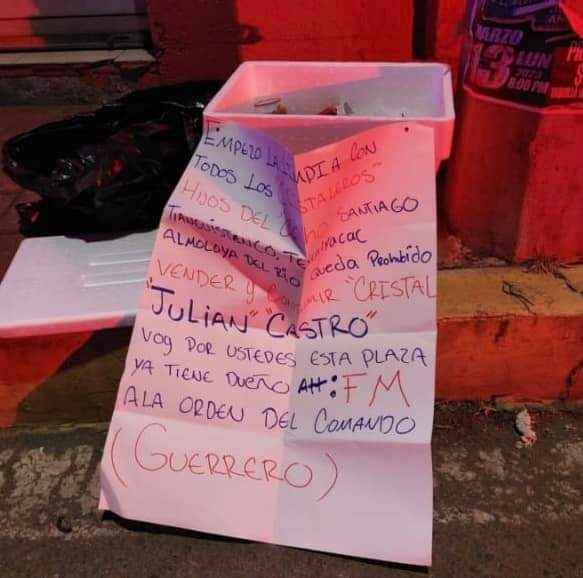 EMPEZO LA LIMPIA CON
TODOS LOS "CRISTALEROS"
HIJOS DEL SANTIAGO
TIANGUISTENCO, TEXCALYACAC
ALMOLOYA DEL RIO QUEDA PROHIBIDO
VENDER Y CONSUMIR "CRISTAL
"JULIAN" "CASTRO"
VOY POR USTEDES ESTA PLAZA
YA TIENE DUEÑO ATT: FM
ALA ORDEN DEL COMANDO
(GUERRERO)
MARZO
13 LUN
2023
8:00 PM